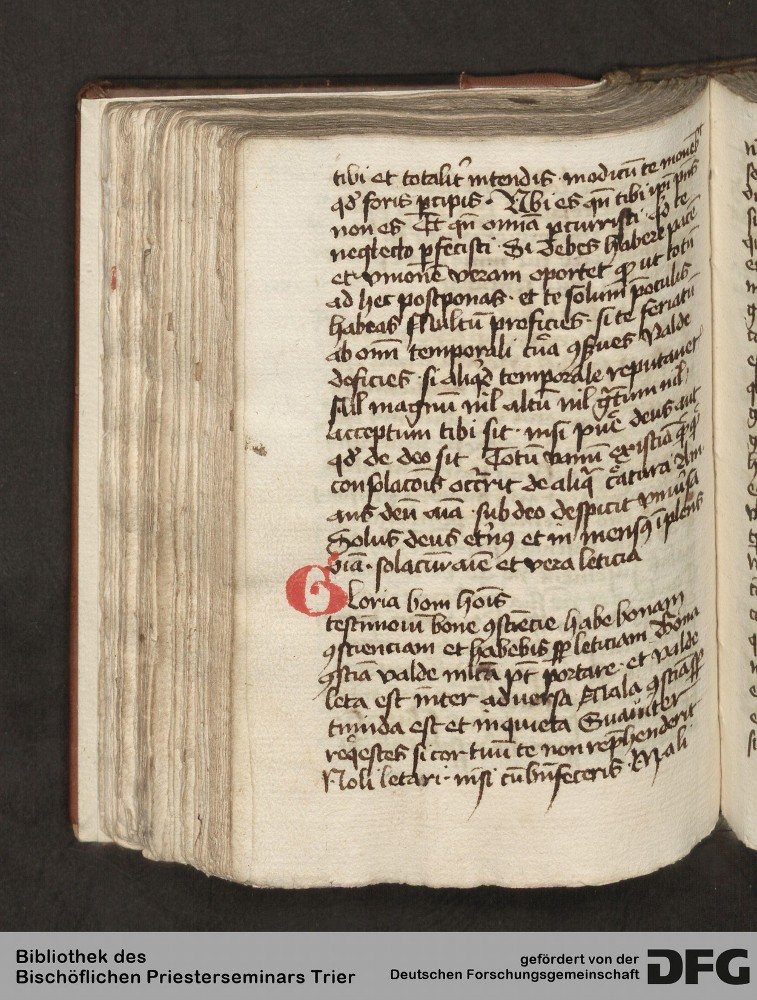 tibi et totalit᷒ intendis · modicū te mouebit
qd̕ foris ꝑcipis · Vbi es qn̄ tibi ip̄i p̄ns
non es Et qn̄ omīa ꝑcurristi qd̕ te
neglecto ꝓfecisti · Si debes habere pacē
et vnionē veram oportet qꝫ ut totū
ad hec postponas · et te solum p̄ oculis
habeas Multū proficies · si te feriatū
ab omī temporali cūa ꝯẜues Valde
deficies · si aliqd̕ temporale reputaueris
Nil magnū nil altū nil gͣtum nil
acceptum tibi sit · nisi pur̄e deus aut
qd̕ de deo sit Totū vanū existīa qͥcqͥd
consolacōīs occr̄rit de aliqͣ cͤatura Am
ans deū aīa · sub deo despicit vniu᷒sa
Solus deus et᷒nꝰ et in mensꝫ īplens
oīa · solaciū aīe et vera leticia
Gloria boni hoīs
testimoniū bone ꝯsciēcie habe bonam
ꝯscienciam et habebis sꝑ leticiam Bona
ꝯsciā valde mlta pt̄ portare · et valde
leta est inter aduersa Mala ꝯsciā sꝑ
timida est et inquieta Suauiter
reqͥesces si cor tuū te non rep̄henderit
Noli letari · nisi cū bn̄feceris · Mali
Bibliothek des
Bischöflichen Priesterseminars Trier
gefördert von der
Deutschen Forschungsgemeinschaft
DFG